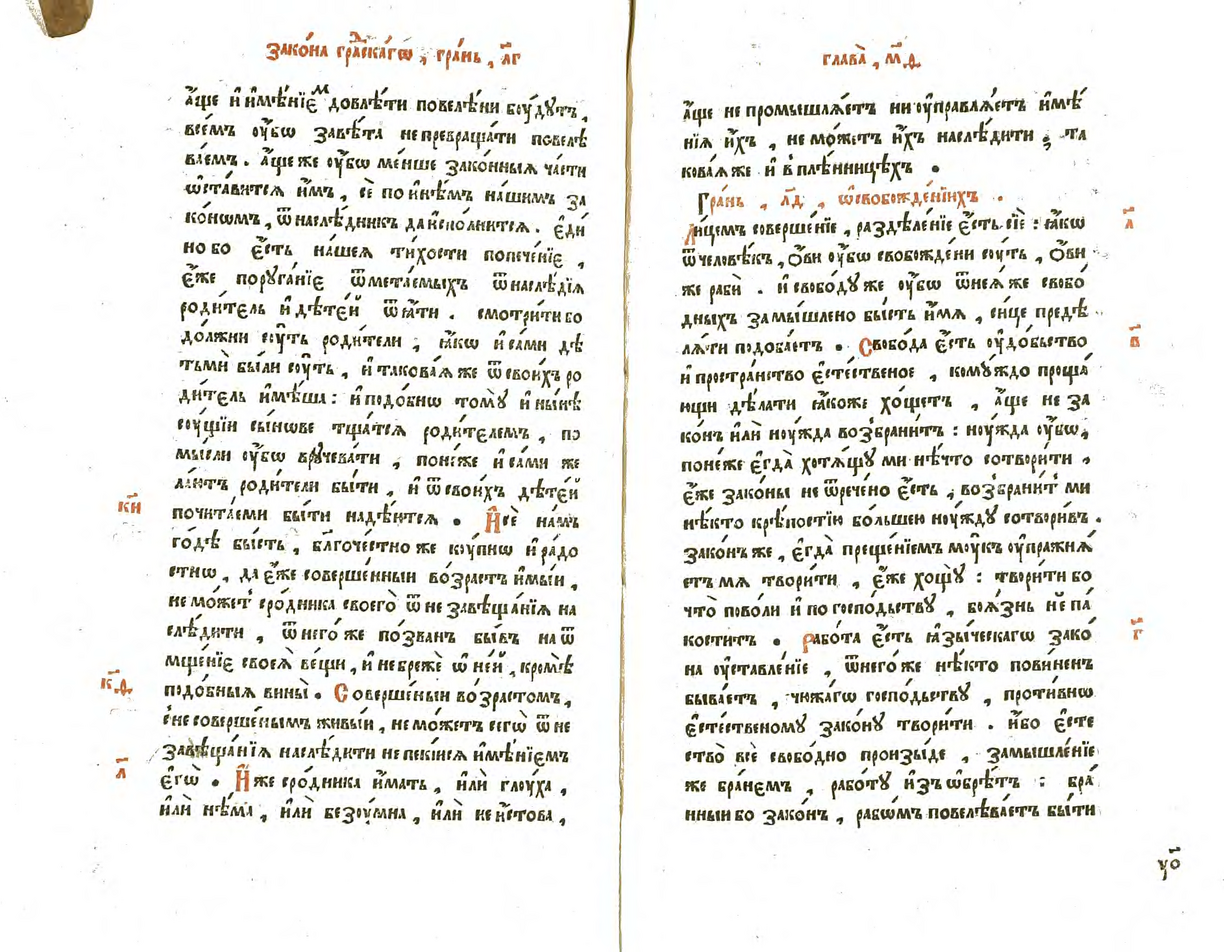 зако́на гра́дскагѡ , гра́нь , л҃г
а҆́ще и҆ и҆мѣ́нїєм довлѣ́ти повелѣ́ни бꙋ́дꙋтъ ,
всѣ́мъ ᲂу҆́бѡ завѣ́та не превраща́ти повелѣ
ва́емъ . а҆́ще же ᲂу҆́бѡ ме́нше зако́нныѧ ча́сти
ѡ҆ста́витсѧ и҆̀мъ , сѐ по и҆нѣ́мъ на́шимъ за
ко́нѡмъ , ѿ наслѣ́дникъ да и҆спо́лнитсѧ . є҆ди
но бо є҆́сть на́шеѧ ти́хости попече́нїє ,
є҆́же порꙋга́нїє ѿмета́емыхъ ѿ наслѣ́дїѧ
роди́тель и҆ дѣте́й ѿѧ́ти . смотри́ти бо
до́лжни сꙋ́ть роди́тели , ꙗ҆́кѡ и҆ са́ми дѣ
тьмѝ бы́ли сꙋ́ть , и҆ такова́ѧ же ѿ свои́хъ ро
ди́тель и҆мѣ́ша : и҆ подо́бнѡ томꙋ̀ и҆ ны́нѣ
сꙋ́щїи сы́нове тща́тсѧ роди́телемъ , по
мы́сли ᲂу҆́бѡ врꙋчева́ти , поне́же и҆ са́ми же
ла́ютъ роди́тели бы́ти , и҆ ѿ свои́хъ дѣте́й
почита́еми бы́ти надѣ́ютсѧ . И҆ сѐ на́мъ
го́дѣ бы́сть , благоче́стно же кꙋ́пнѡ и҆ ра́до
стнѡ , да є҆́же соверше́нныи во́зрастъ и҆мы́и ,
не мо́жетъ сро́дника своего̀ ѿ не завѣща́нїѧ на
слѣ́дити , ѿ него́ же по́званъ бы́въ на ѿ
мще́нїє своеѧ̀ ве́щи , и҆ небрежѐ ѡ҆ не́й , кро́мѣ
подо́бныѧ вины̀ . Соверше́ныи во́зрастомъ ,
с не соверше́нымъ живы́и , не мо́жетъ сегѡ̀ ѿ не
завѣща́нїѧ наслѣ́дити не пекі́исѧ и҆мѣ́нїемъ
є҆гѡ̀ . И҆́же сро́дника и҆́мать , и҆лѝ глꙋ́ха ,
и҆лѝ нѣ́ма , и҆лѝ безꙋ́мна , и҆лѝ не и҆́стова ,
к҃и
к҃ѳ
л҃
глава̀ , м҃ѳ
а҆́ще не промышлѧ́етъ ни ᲂу҆правлѧ́етъ и҆мѣ́
нїѧ и҆́хъ , не мо́жетъ и҆́хъ наслѣ́дити ; та
кова́ѧ же и҆ в плѣ́нницѣхъ .
Гра́нь , л҃д , ѡ҆ свобожде́нїихъ .
Ли́цемъ соверше́нїе , раздѣле́нїе є҆́сть сїѐ : ꙗ҆́кѡ
ѿ человѣ́къ , ѻ҆́ви ᲂу҆́бѡ свобожде́ни сꙋ́ть , ѻ҆́ви
же рабѝ . и҆ свобо́дꙋ же ᲂу҆́бѡ ѿ неѧ́ же свобо́
дныхъ замы́шлено бы́сть и҆́мѧ , си́це предѣ
лѧ́ти подоба́етъ . Свобо́да є҆́сть ᲂу҆до́бьство
и҆ простра́нство є҆сте́ственое , комꙋ́ждо проща́
ющи дѣ́лати ꙗ҆́коже хо́щетъ , а҆́ще не за
ко́нъ и҆лѝ нꙋ́жда возбрани́тъ : нꙋ́жда ᲂу҆́бѡ ,
поне́же є҆гда̀ хотѧ́щꙋ ми нѣ́что сотвори́ти ,
є҆́же зако́ны не ѿрече́но є҆́сть , возбрани́т ми
нѣ́кто крѣ́постїю бо́льшею нꙋ́ждꙋ сотвори́в .
зако́нъ же , є҆гда̀ преще́нїемъ мꙋ́къ ᲂу҆пражнѧ́
етъ мѧ твори́ти , є҆́же хощꙋ̀ : твори́ти бо
что̀ по во́ли и҆ по госпо́дьствꙋ , боѧ́знь не па́
кости́тъ . Рабо́та є҆́сть ꙗ҆зы́ческагѡ зако́
на ᲂу҆ставле́нїе , ѿ него́же нѣ́кто пови́ненъ
быва́етъ , чюжа́гѡ госпо́дьствꙋ , проти́внѡ
є҆сте́ственомꙋ зако́нꙋ твори́ти . и҆́бо є҆сте
ство̀ всѐ свобо́дно произы́де , замышле́нїе
же бра́немъ , рабо́тꙋ и҆з ѡ҆брѣ́тъ : бра́
нныи бо зако́нъ , рабѡ́мъ повелѣва́етъ бы́ти
а҃
в҃
г҃
уо҃